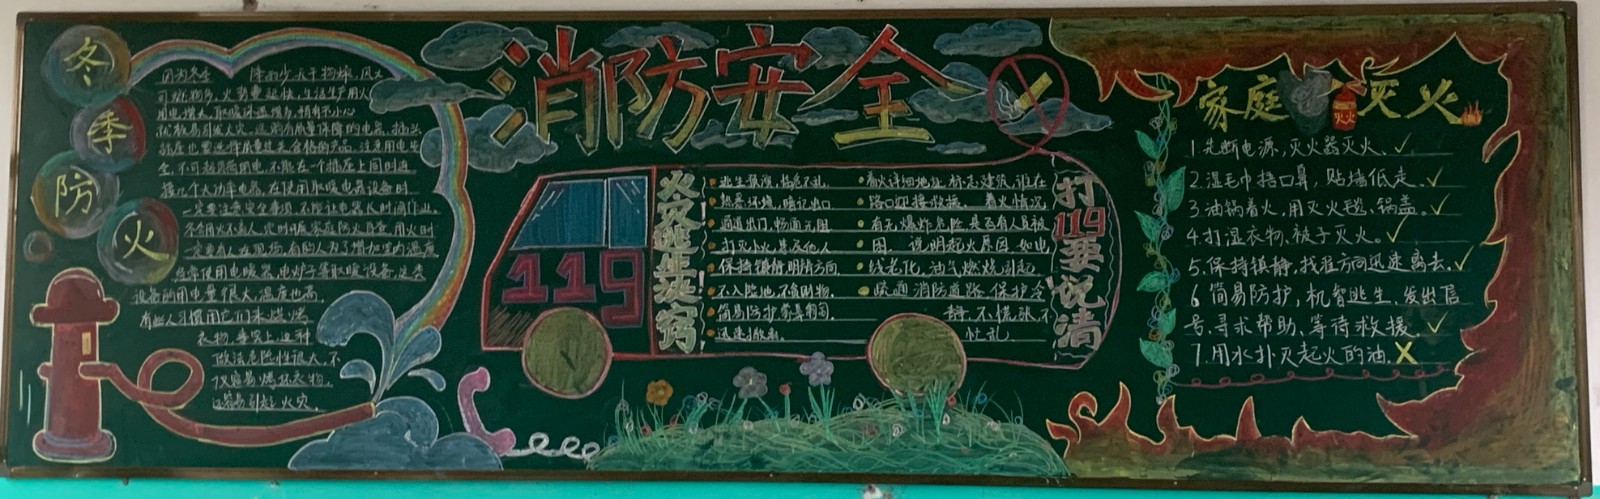 消防安全
冬季防火
因为冬季 降雨少天干物燥,风大
可燃物多,火势蔓延快,生活生产用火
用电增大,取暖保温增多,稍有不小心
就极易引发火灾。选购有质量保障的电器,插头
插座也要选择质量过关合格的产品,注意用电安
全,不可超负荷用电,不能在一个插座上同时连
接几个大功率电器,在使用取暖电器设备时
一定要注意安全事项,不能让电器长时间作业。
冬季用火不离人,定时开展家庭防火自查,用火时
一定要有人在现场,有的人为了增加室内温度
经常使用电暖器、电炉子等取暖设备,这类
设备的用电量很大,温度也高,
有些人习惯用它们来烘烤
衣物,事实上这种
做法危险性很大,不
仅容易烤坏衣物,
还容易引起火灾。
119
火灾逃生决窍
逃生预演,临危不乱。
熟悉环境,暗记出口
通道出门,畅通无阻
打灭小火,惠及他人
保持镇静,明辨方向
不入险地,不贪财物。
简易防护,蒙鼻匍匐。
迅速撤离。
打119要说清
着火详细地址 标志建筑,谁在
路口迎接救援。 着火情况,
有无爆炸危险 是否有人员被
困。 说明起火原因 如电
线老化、油气燃烧引起
疏通消防道路 保护冷
静,不慌张,不
忙乱
家庭灭火
灭火
1.先断电源,灭火器灭火、✓
2.湿毛巾捂口鼻,贴墙低走。✓
3.油锅着火,用灭火毯、锅盖。✓
4.打湿衣物、被子灭火。✓
5.保持镇静,找准方向迅速离去。✓
6 简易防护,机智逃生,发出信
号、寻求帮助、等待救援。✓
7.用水扑灭起火的油。X